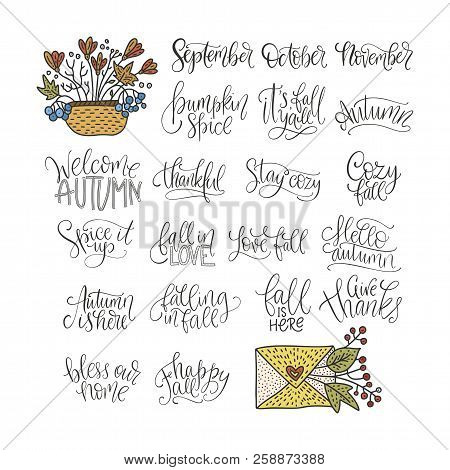 September October November
Pumpkin
Spice
It's fall
y'all
Autumn
Welcome
AUTUMN
thankful
Stay cozy
Cozy
fall
Spice it
up
fall in
LOVE
Love fall
Hello
autumn
Autumn
is here
falling
in fall
fall
IS
HERE
Give
Thanks
bless our
home
happy
fall
bigstock • 258873388